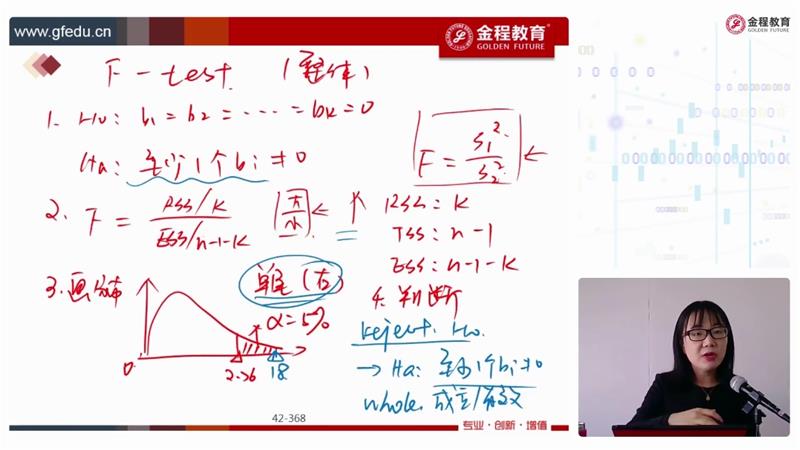 www.gfedu.cn
金程教育
GOLDEN FUTURE
金程教育
GOLDEN FUTURE
F-test. (整体)
1. H0: b1 = b2 = ...... = bk = 0
Ha: 至少1个bi ≠ 0
F = S1² / S2² ←
2. F = RSS/K / ESS/n-1-K 大/小 ← RSS: K
TSS: n-1
ESS: n-1-K
3. 画分布 单尾(右) α=5%
0 2.76 18
4. 判断
Reject. H0.
→ Ha: 至少1个bi≠0
whole. 成立/有效
42-368
专业·创新·增值